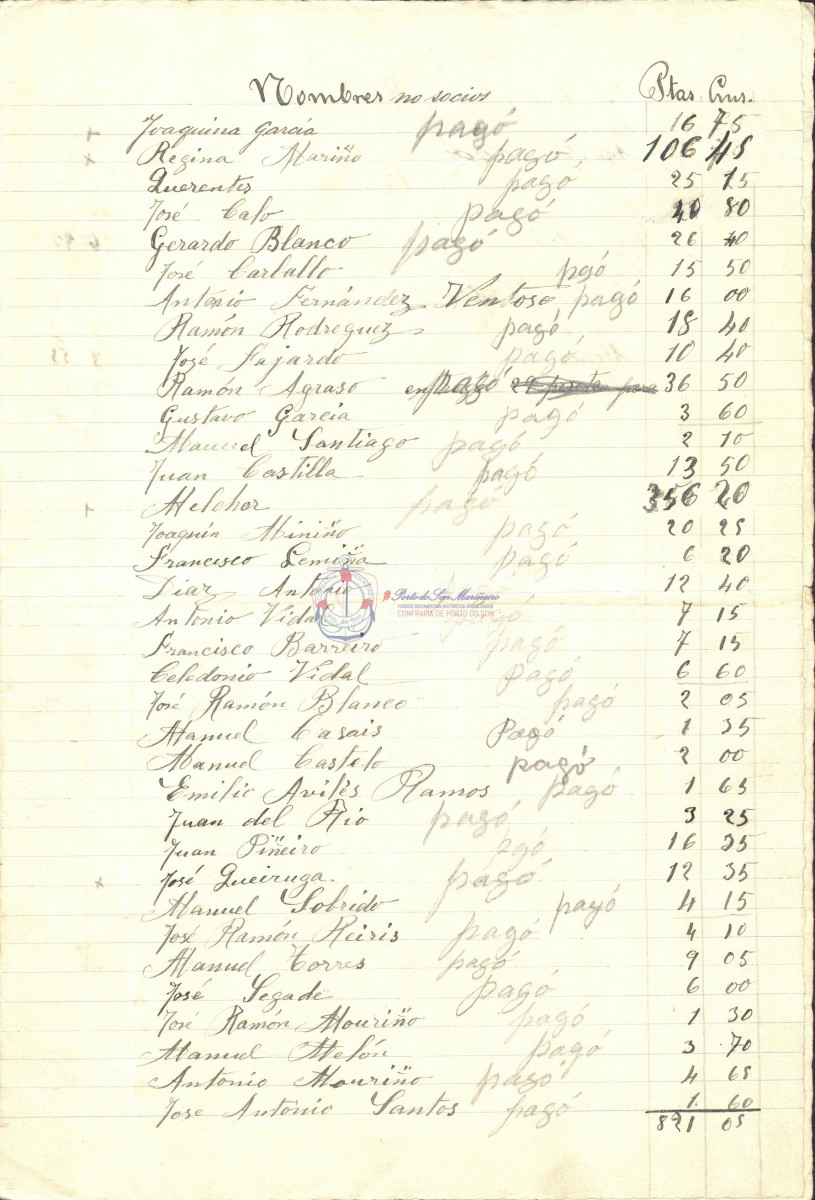 Nombres no socios Ptas Cms.
Joaquina García pagó 16 75
x Regina Mariño pagó 106 45
Querentes pagó 25 15
José Caso pagó 40 80
Gerardo Blanco pagó 26 40
José Carballo pgó 15 50
Antonio Fernández Ventoso pagó 16 00
Ramón Rodreguez pagó 18 40
José Fajardo pagó 10 40
Ramón Agraso pagó 36 50
Gustavo García pagó 3 60
Manuel Santiago pagó 2 10
Juan Castilla pagó 13 50
Melchor pagó 356 20
Joaquín Miniño pagó 20 25
Francisco Lemiña pagó 6 20
Díaz Antonio 12 40
#Porto do Son Mariñeiro
FONDOS DOCUMENTAIS HISTÓRICOS DIXITALIZADOS
CONFRARIA DE PORTO DO SON
Antonio Vidal pagó 7 15
Francisco Barreiro pagó 7 15
Celedonio Vidal pagó 6 60
José Ramón Blanco pagó 2 05
Manuel Casais pagó 1 35
Manuel Castelo pagó 2 00
Emilio Avilés Ramos pagó 1 65
Juan del Rio pagó 3 25
Juan Piñeiro pgó 16 35
x José Queiruga. pagó 12 35
Manuel Sobrido pagó 4 15
José Ramón Reiris pagó 4 10
Manuel Torres pagó 9 05
José Segade pagó 6 00
José Ramón Mouriño pagó 1 30
Manuel Melón pagó 3 70
Antonio Mouriño pagó 4 65
Jose Antonio Santos pagó 1 60
821 05